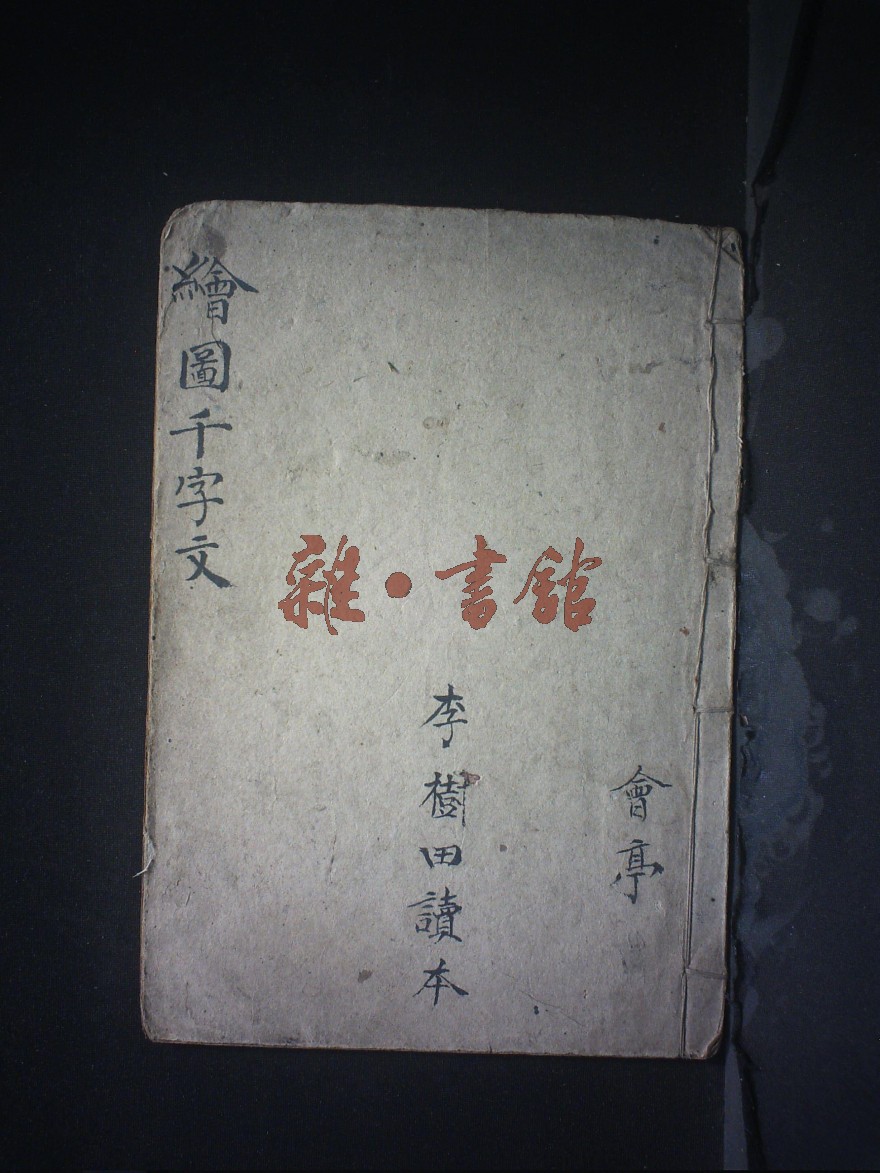 會亭
李樹田讀本
繪圖千字文
雜·書館